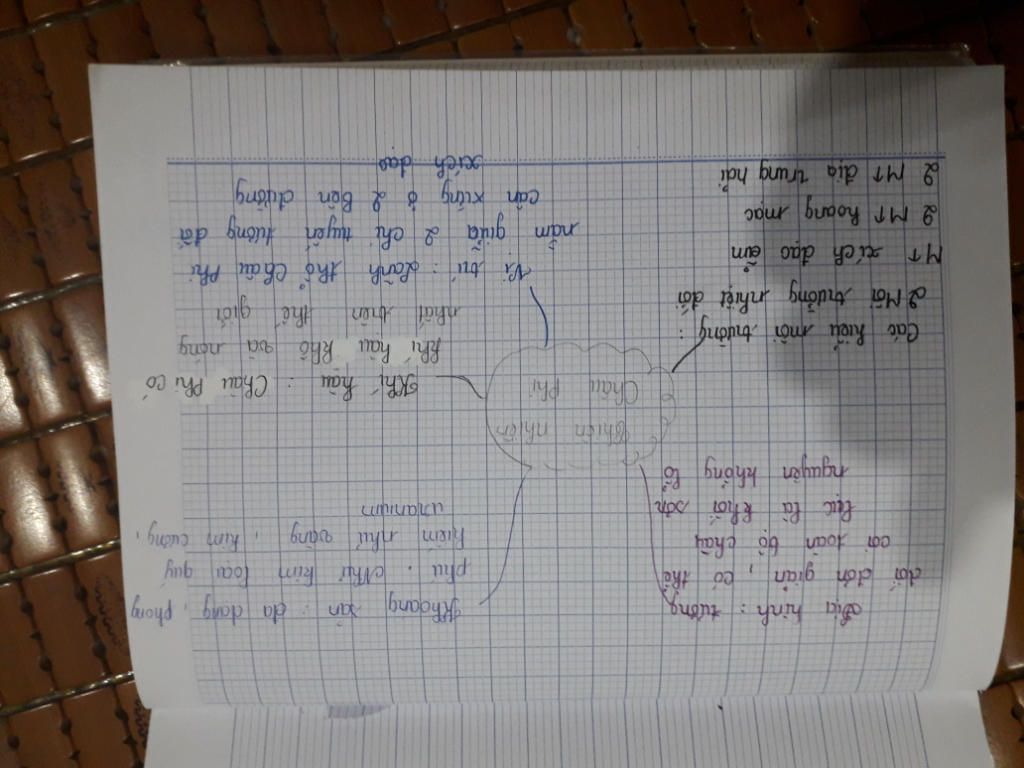 Thiên nhiên
Châu Phi
Địa hình : tương
đối đơn giản , có thể
coi toàn bộ châu
lục là khối sơn
nguyên khổng lồ
Khoáng sản : đa dạng , phong
phú . Như kim loại quý
hiếm như vàng , kim cương ,
uranium
Khí hậu : Châu Phi có
khí hậu khô và nóng
nhất trên thế giới
Vị trí : Lãnh thổ Châu Phi
nằm giữa 2 chí tuyến tương đối
cân xứng ở 2 Bên đường
xích đạo
Các kiểu môi trường :
2 Môi trường nhiệt đới
MT xích đạo ẩm
2 MT hoang mạc
2 MT địa trung hải